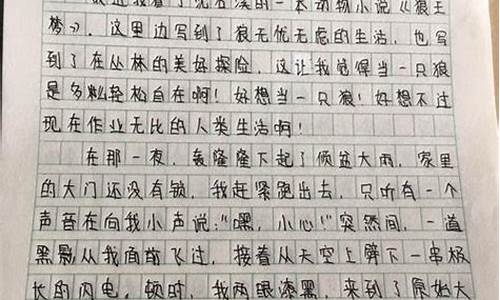 最近我看了沈石溪的一本动物小说《狼王
梦》,这里边写到了狼无优无虑的生活,也写
到了在丛林的美好探险,这让我觉得当一只狼
是多么轻松自在啊!好想当一只狼!好想不过
现在作业无比的人类生活啊!
在那一夜,轰隆隆下起了倾盆大雨,家里
的大门还没有锁,我赶紧跑出去,只听有一个
声音在向我小声说:“嘿,小心!”突然间,一道
黑影从我面前飞过,接着从天空上劈下一串极
长的闪电,顿时,我两眼漆黑,来到了原始大